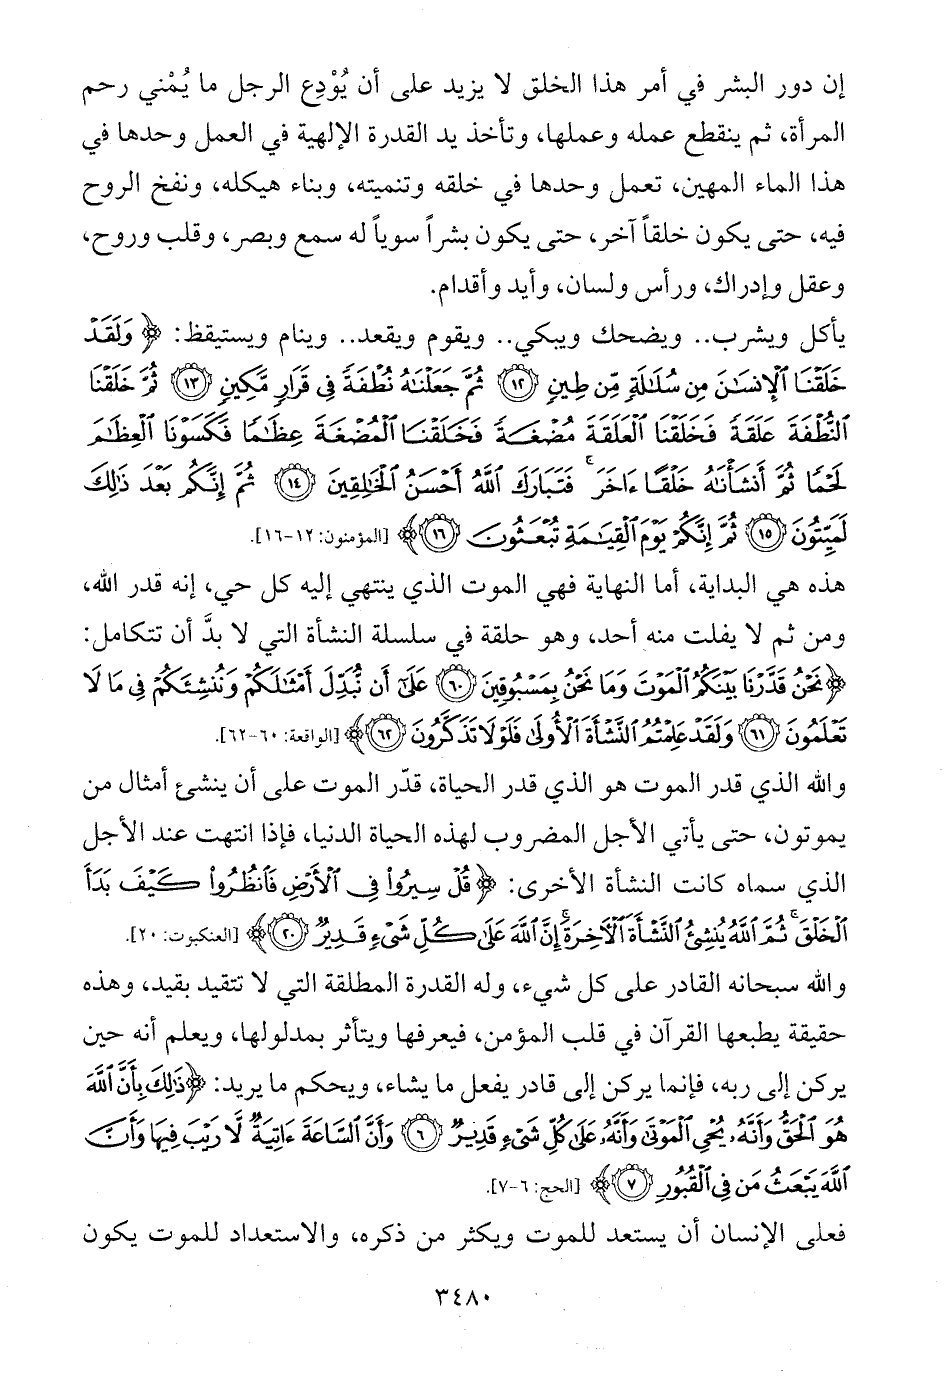 إن دور البشر في أمر هذا الخلق لا يزيد على أن يُوْدِع الرجل ما يُمْني رحم
المرأة، ثم ينقطع عمله وعملها، وتأخذ يد القدرة الإلهية في العمل وحدها في
هذا الماء المهين، تعمل وحدها في خلقه وتنميته، وبناء هيكله، ونفخ الروح
فيه، حتى يكون خلقاً آخر، حتى يكون بشراً سوياً له سمع وبصر، وقلب وروح،
وعقل وإدراك، ورأس ولسان، وأيد وأقدام.
يأكل ويشرب.. ويضحك ويبكي.. ويقوم ويقعد.. وينام ويستيقظ: ﴿ وَلَقَدْ
خَلَقْنَا ٱلْإِنسَـٰنَ مِن سُلَـٰلَةٍ مِّن طِينٍ ﴿١٢﴾ ثُمَّ جَعَلْنَـٰهُ نُطْفَةً فِى قَرَارٍ مَّكِينٍ ﴿١٣﴾ ثُمَّ خَلَقْنَا
ٱلنُّطْفَةَ عَلَقَةً فَخَلَقْنَا ٱلْعَلَقَةَ مُضْغَةً فَخَلَقْنَا ٱلْمُضْغَةَ عِظَـٰمًا فَكَسَوْنَا ٱلْعِظَـٰمَ
لَحْمًا ثُمَّ أَنشَأْنَـٰهُ خَلْقًا ءَاخَرَ ۚ فَتَبَارَكَ ٱللَّهُ أَحْسَنُ ٱلْخَـٰلِقِينَ ﴿١٤﴾ ثُمَّ إِنَّكُم بَعْدَ ذَٰلِكَ
لَمَيِّتُونَ ﴿١٥﴾ ثُمَّ إِنَّكُمْ يَوْمَ ٱلْقِيَـٰمَةِ تُبْعَثُونَ ﴿١٦﴾ ﴾ [المؤمنون: ١٢-١٦].
هذه هي البداية، أما النهاية فهي الموت الذي ينتهي إليه كل حي، إنه قدر الله،
ومن ثم لا يفلت منه أحد، وهو حلقة في سلسلة النشأة التي لا بدَّ أن تتكامل:
﴿ نَحْنُ قَدَّرْنَا بَيْنَكُمُ ٱلْمَوْتَ وَمَا نَحْنُ بِمَسْبُوقِينَ ﴿٦٠﴾ عَلَىٰٓ أَن نُّبَدِّلَ أَمْثَـٰلَكُمْ وَنُنشِئَكُمْ فِى مَا لَا
تَعْلَمُونَ ﴿٦١﴾ وَلَقَدْ عَلِمْتُمُ ٱلنَّشْأَةَ ٱلْأُولَىٰ فَلَوْلَا تَذَكَّرُونَ ﴿٦٢﴾ ﴾ [الواقعة: ٦٠-٦٢].
والله الذي قدر الموت هو الذي قدر الحياة، قدّر الموت على أن ينشئ أمثال من
يموتون، حتى يأتي الأجل المضروب لهذه الحياة الدنيا، فإذا انتهت عند الأجل
الذي سماه كانت النشأة الأخرى: ﴿ قُلْ سِيرُوا۟ فِى ٱلْأَرْضِ فَٱنظُرُوا۟ كَيْفَ بَدَأَ
ٱلْخَلْقَ ۚ ثُمَّ ٱللَّهُ يُنشِئُ ٱلنَّشْأَةَ ٱلْـَٔاخِرَةَ ۚ إِنَّ ٱللَّهَ عَلَىٰ كُلِّ شَىْءٍ قَدِيرٌ ﴿٢٠﴾ ﴾ [العنكبوت: ٢٠].
والله سبحانه القادر على كل شيء، وله القدرة المطلقة التي لا تتقيد بقيد، وهذه
حقيقة يطبعها القرآن في قلب المؤمن، فيعرفها ويتأثر بمدلولها، ويعلم أنه حين
يركن إلى ربه، فإنما يركن إلى قادر يفعل ما يشاء، ويحكم ما يريد: ﴿ ذَٰلِكَ بِأَنَّ ٱللَّهَ
هُوَ ٱلْحَقُّ وَأَنَّهُۥ يُحْىِ ٱلْمَوْتَىٰ وَأَنَّهُۥ عَلَىٰ كُلِّ شَىْءٍ قَدِيرٌ ﴿٦﴾ وَأَنَّ ٱلسَّاعَةَ ءَاتِيَةٌ لَّا رَيْبَ فِيهَا وَأَنَّ
ٱللَّهَ يَبْعَثُ مَن فِى ٱلْقُبُورِ ﴿٧﴾ ﴾ [الحج: ٦-٧].
فعلى الإنسان أن يستعد للموت ويكثر من ذكره، والاستعداد للموت يكون
٣٤٨٠